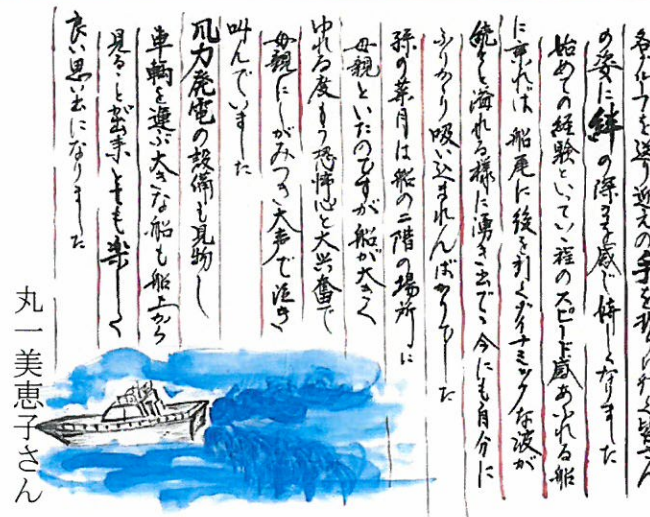 各グループを送り迎えの手を振り行く皆さん
の姿に絆の深さを感じ嬉しくなりました
始めての経験といっていい程のスピード感あふれる船
に乗れば船尾に後を引くダイナミックな波が
続々と溢れる様に湧き出でゝ今にも自分に
ふりかゝり吸い込まれんばかりでした
孫の菜月は船の二階の場所に
母親といたのですが船が大きく
ゆれる度もう恐怖心と大興奮で
母親にしがみつき大声で泣き
叫んでいました
風力発電の設備も見物し
車輌を運ぶ大きな船も船上から
見ることが出来とても楽しく
良い思い出になりました
丸一美恵子さん